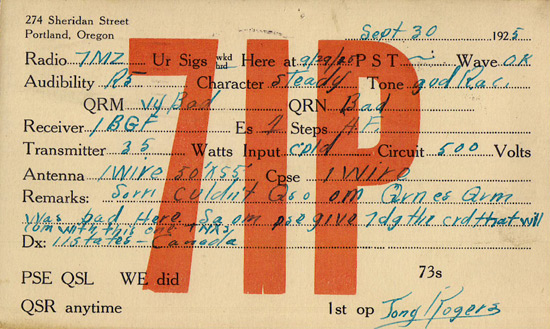 274 Sheridan Street
Portland, Oregon
Sept 30 1925
7IP
Radio 7MZ Ur Sigs wkd hrd Here at 9/29/25 PST Wave OK
Audibility R5 Character Steady Tone god Rac.
QRM vy Bad QRN Bad
Receiver 1BGF Es 2 Steps A.F.
Transmitter 35 Watts Input cpld Circuit 500 Volts
Antenna 1 Wire 50' X 55' Cpse 1 Wire
Remarks: Sorri culdn't Qso om Qrn es Qrm
was bad Here. Sa om pse give 7dg the crd that will
com with this one TNXs
Dx: 11 states - Canada
PSE QSL WE did 73s
QSR anytime 1st op Tony Rogers